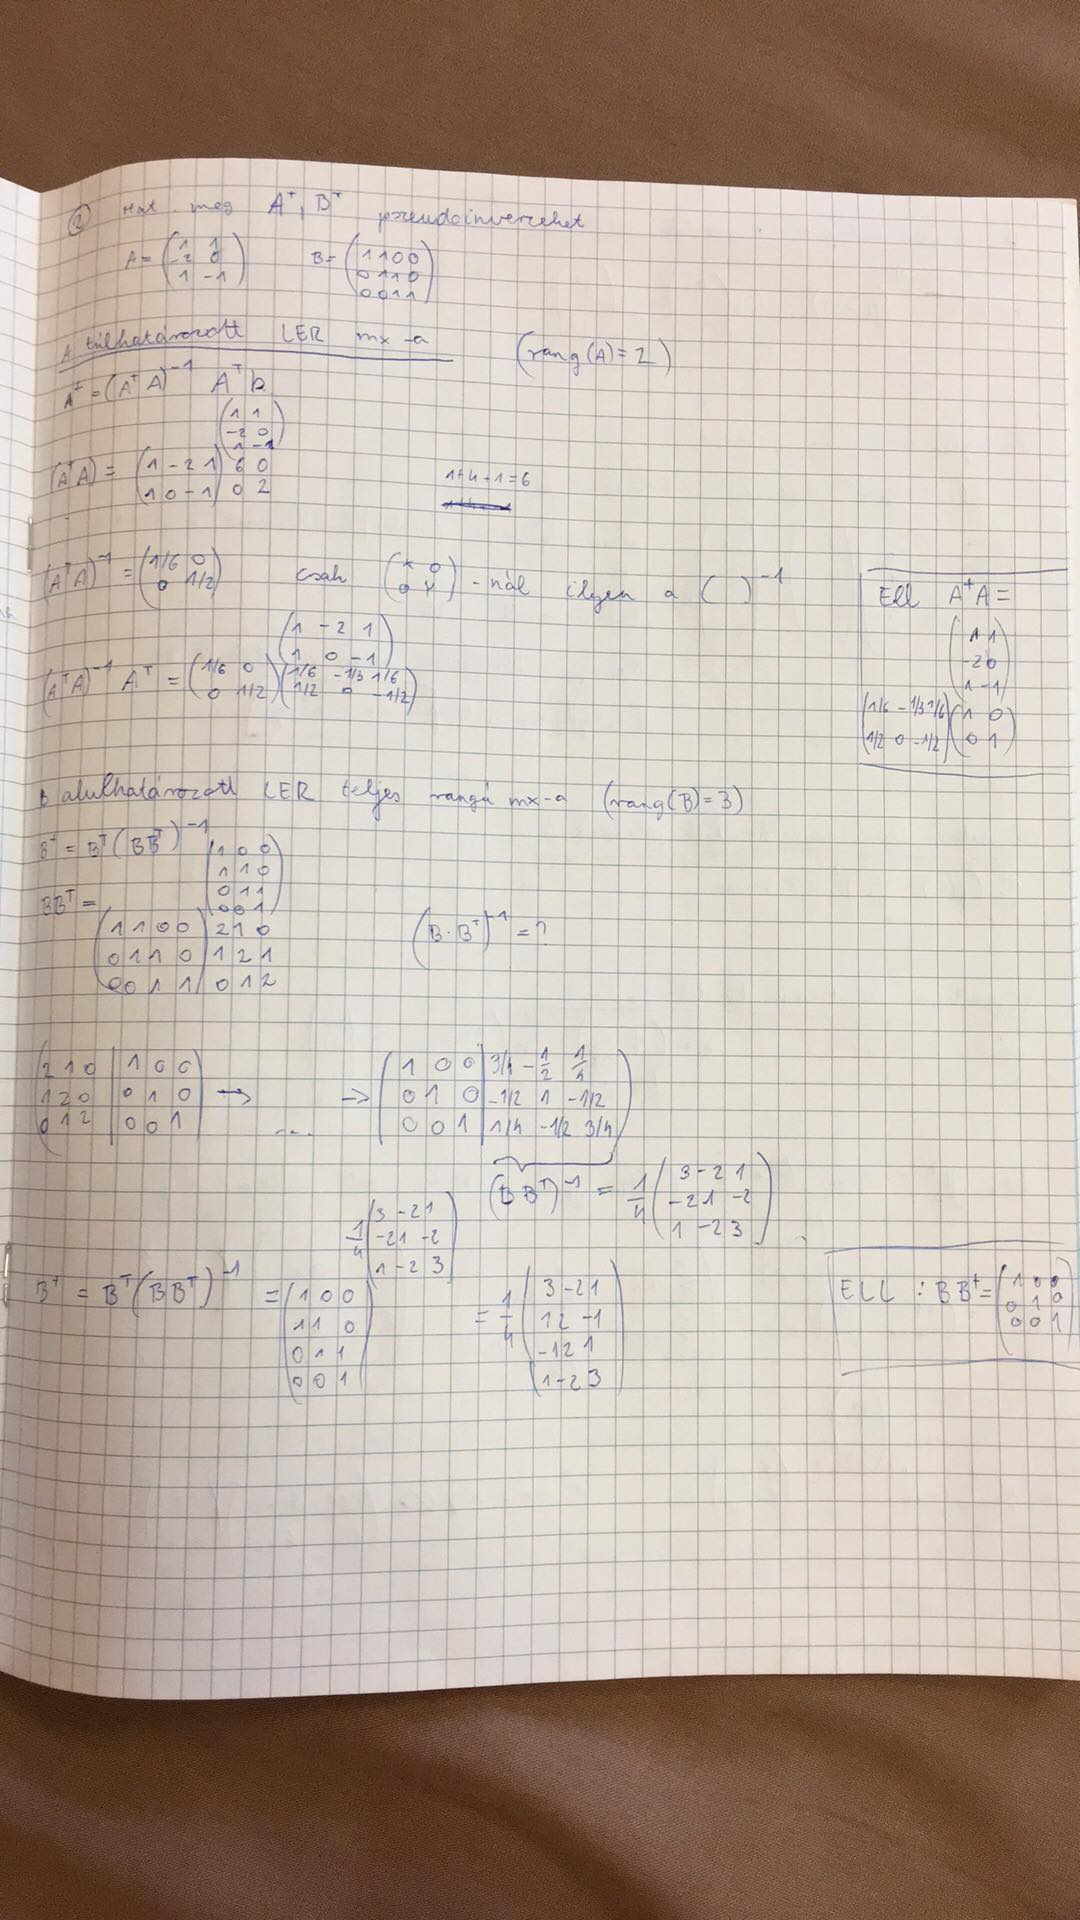 ② Hat. meg A⁺, B⁺ pszeudoinverzeket
A = ( 1 1 ; -2 0 ; 1 -1 )   B = ( 1 1 0 0 ; 0 1 1 0 ; 0 0 1 1 )
A túlhatározott LER mx-a   (rang(A) = 2)
A⁺ = (AᵀA)⁻¹ Aᵀ b
( 1 1 ; -2 0 ; 1 -1 )
(AᵀA) = ( 1 -2 1 ; 1 0 -1 ) 6 0 ; 0 2
1+4+1=6
(AᵀA)⁻¹ = ( 1/6 0 ; 0 1/2 )   csak ( x 0 ; 0 y ) -nál ilyen a ( )⁻¹
( 1 -2 1 ; 1 0 -1 )
(AᵀA)⁻¹ Aᵀ = ( 1/6 0 ; 0 1/2 ) ( 1/6 -1/3 1/6 ; 1/2 0 -1/2 )
Ell A⁺A =
( 1 1 ; -2 0 ; 1 -1 )
( 1/6 -1/3 1/6 ; 1/2 0 -1/2 ) ( 1 0 ; 0 1 )
B alulhatározott LER teljes rangú mx-a (rang(B) = 3)
B⁺ = Bᵀ(BBᵀ)⁻¹
( 1 0 0 ; 1 1 0 ; 0 1 1 ; 0 0 1 )
BBᵀ =
( 1 1 0 0 ; 0 1 1 0 ; 0 0 1 1 ) 2 1 0 ; 1 2 1 ; 0 1 2
(B·Bᵀ)⁻¹ = ?
( 2 1 0 | 1 0 0 ; 1 2 0 | 0 1 0 ; 0 1 2 | 0 0 1 ) → .... → ( 1 0 0 | 3/4 -1/2 1/4 ; 0 1 0 | -1/2 1 -1/2 ; 0 0 1 | 1/4 -1/2 3/4 )
(BBᵀ)⁻¹ = 1/4 ( 3 -2 1 ; -2 1 -2 ; 1 -2 3 )
1/4 ( 3 -2 1 ; -2 1 -2 ; 1 -2 3 )
B⁺ = Bᵀ(BBᵀ)⁻¹ = ( 1 0 0 ; 1 1 0 ; 0 1 1 ; 0 0 1 ) = 1/4 ( 3 -2 1 ; 1 2 -1 ; -1 2 1 ; 1 -2 3 )
ELL : BB⁺ = ( 1 0 0 ; 0 1 0 ; 0 0 1 )